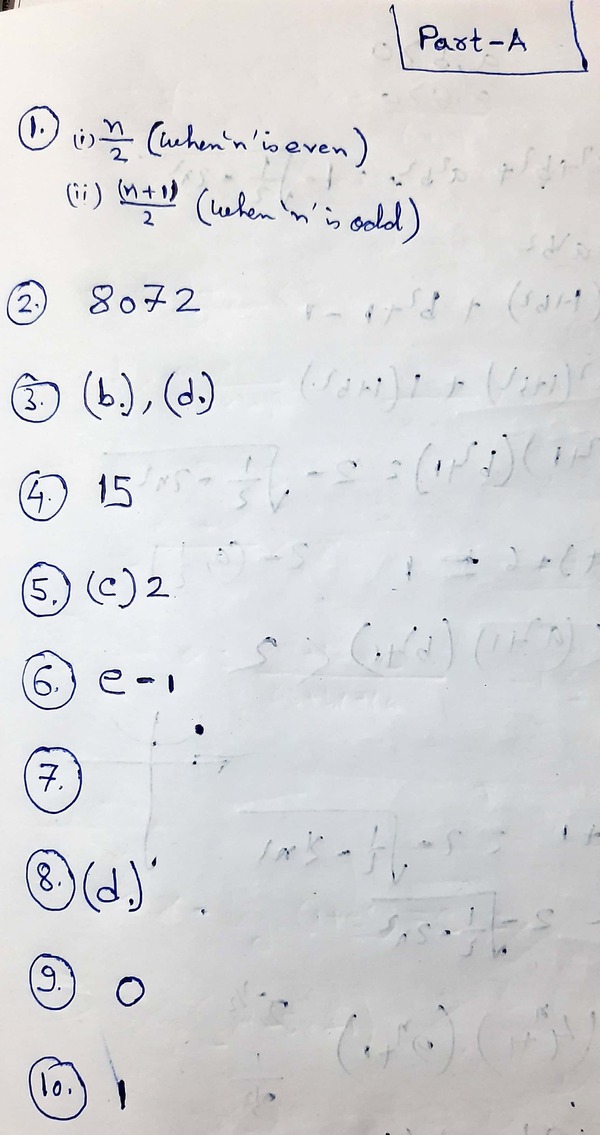 Part-A
1. (i) n/2 (when 'n' is even)
(ii) (n+1)/2 (when 'n' is odd)
2. 8072
3. (b.), (d.)
4. 15
5. (c) 2
6. e-1
7.
8. (d.)
9. 0
10. 1